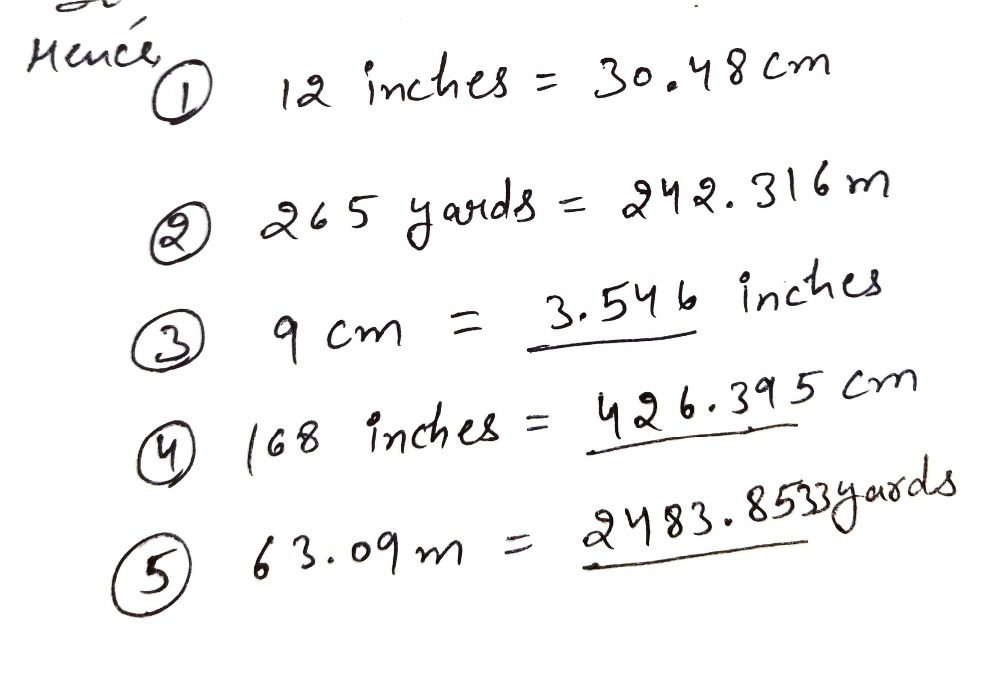 Hence,
① 12 inches = 30.48 cm
② 265 yards = 242.316 m
③ 9 cm = 3.546 inches
④ 168 inches = 426.395 cm
⑤ 63.09 m = 2483.8533 yards